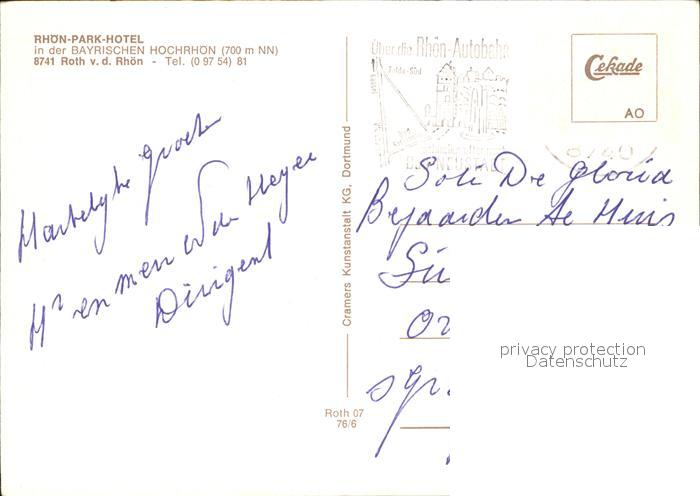 RHÖN-PARK-HOTEL
in der BAYRISCHEN HOCHRHÖN (700 m NN)
8741 Roth v. d. Rhön - Tel. (0 97 54) 81
Hartelyke groeten
Hr en mevr v der Heyen
Dirigent
Cramers Kunstanstalt KG, Dortmund
Roth 07
76/6
Über die Rhön-Autobahn
Fulda-Süd
Cekade
AO
8740
Soli De Gloria
Bejaarden te Huis
privacy protection
Datenschutz